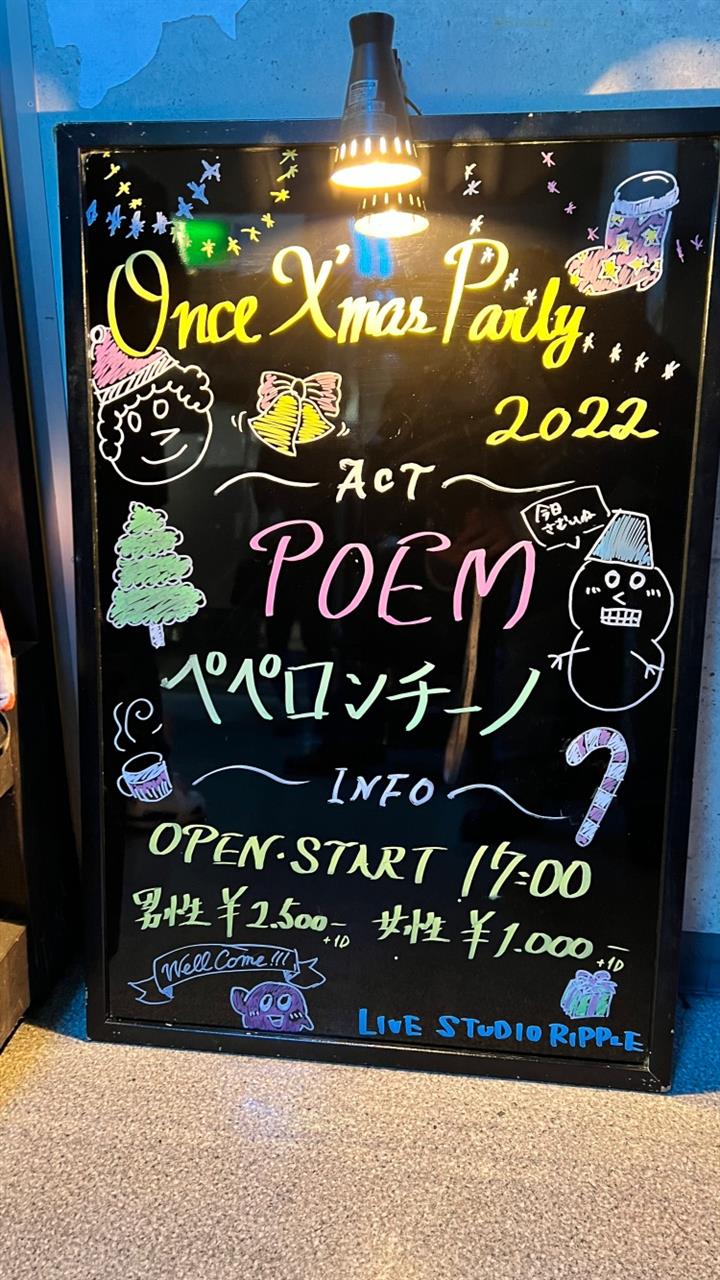 Once X'mas Party
2022
ACT
今日
さむいね
POEM
ペペロンチーノ
INFO
OPEN・START 17:00
男性 ¥2.500- +1D 女性 ¥1.000- +1D
Well Come!!!
LIVE STUDIO RIPPLE